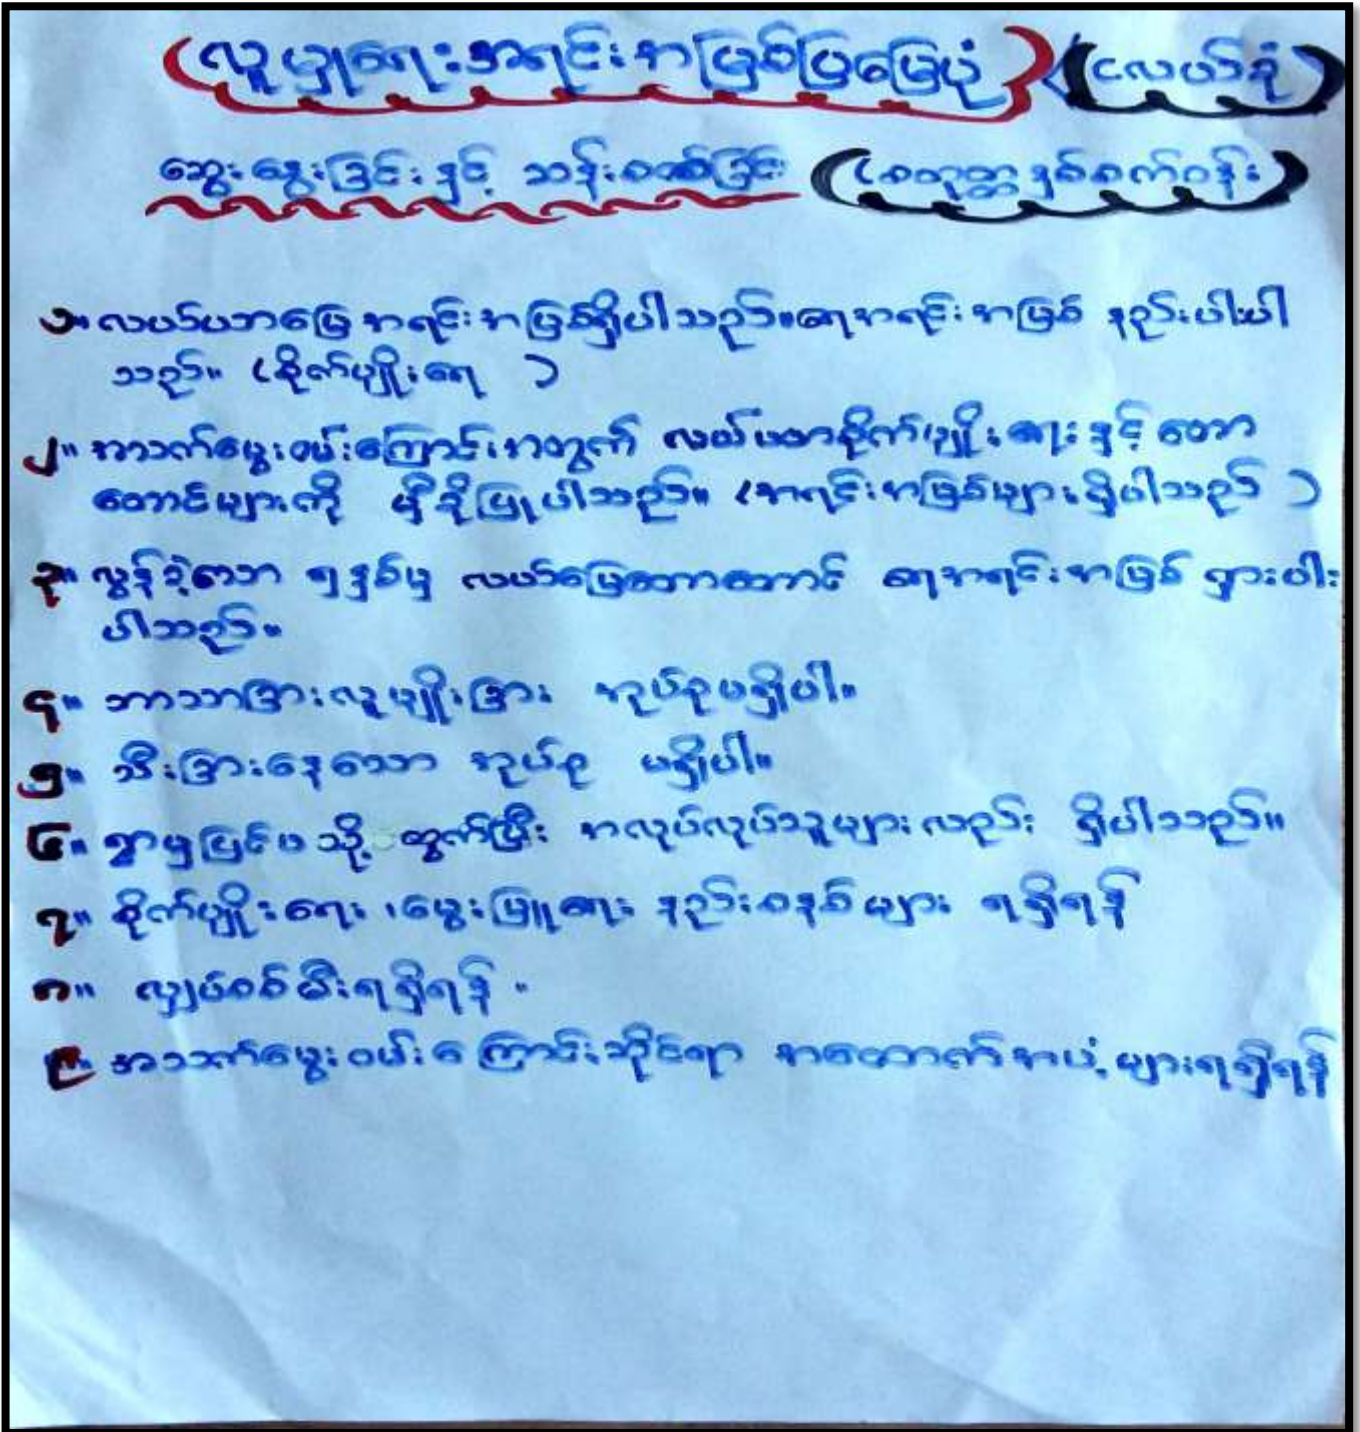 (လူမှုရေးအရင်းအမြစ်ပြမြေပုံ) (ငလယ်ခုံ)
ဆွေးနွေးခြင်းနှင့် သန်းစစ်ခြင်း (စတုတ္ထနှစ်စက်ဝန်း)
၁။ လယ်ယာမြေအရင်းအမြစ်ရှိပါသည်။ရေအရင်းအမြစ် နည်းပါးပါ
သည်။ (စိုက်ပျိုးရေ )
၂။ အသက်မွေးဝမ်းကြောင်းအတွက် လယ်ယာစိုက်ပျိုးရေးနှင့် တော
တောင်များကို မှီခိုပြုပါသည်။ (အရင်းအမြစ်များရှိပါသည် )
၃။ လွန်ခဲ့သော ၅နှစ်မှ လယ်မြေတောတောင် ရေအရင်းအမြစ် ရှားပါး
ပါသည်။
၄။ ဘာသာခြားလူမျိုးခြား အုပ်စုမရှိပါ။
၅။ သီးခြားနေသော အုပ်စု မရှိပါ။
၆။ ရွာမှပြင်ပသို့ ထွက်ပြီး အလုပ်လုပ်သူများလည်း ရှိပါသည်။
၇။ စိုက်ပျိုးရေး ၊မွေးမြူရေး နည်းစနစ်များ ရရှိရန်
၈။ လျှပ်စစ်မီးရရှိရန် ။
၉။ အသက်မွေးဝမ်းကြောင်းဆိုင်ရာ အထောက်အပံ့များရရှိရန်